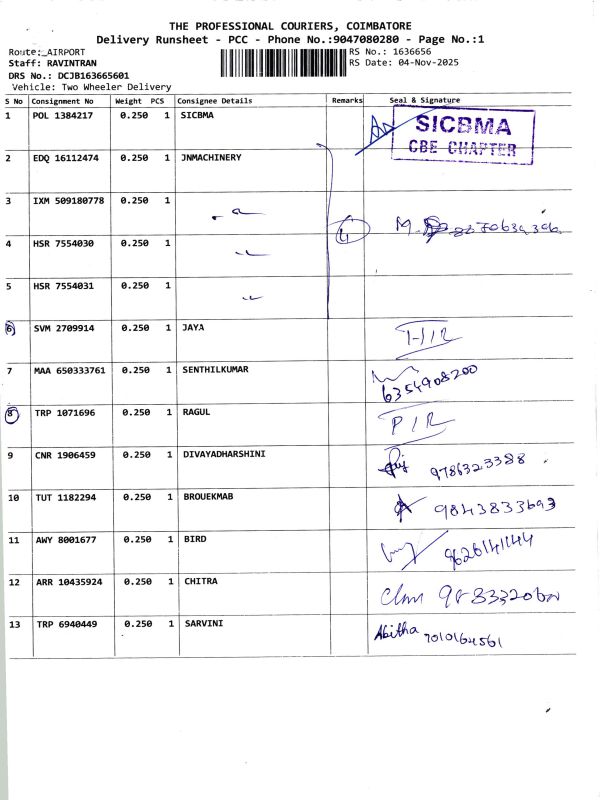 THE PROFESSIONAL COURIERS, COIMBATORE
Delivery Runsheet - PCC - Phone No.:9047080280 - Page No.:1
Route: AIRPORT
RS No.: 1636656
Staff: RAVINTRAN
RS Date: 04-Nov-2025
DRS No.: DCJB163665601
Vehicle: Two Wheeler Delivery
S No Consignment No Weight PCS Consignee Details Remarks Seal & Signature
1 POL 1384217 0.250 1 SICBMA SICBMA
CBE CHAPTER
2 EDQ 16112474 0.250 1 JNMACHINERY
3 IXM 509180778 0.250 1
4 HSR 7554030 0.250 1
5 HSR 7554031 0.250 1
6 SVM 2709914 0.250 1 JAYA
7 MAA 650333761 0.250 1 SENTHILKUMAR 6354908200
8 TRP 1071696 0.250 1 RAGUL P/R
9 CNR 1906459 0.250 1 DIVAYADHARSHINI 9786323388
10 TUT 1182294 0.250 1 BROUEKMAB 9843833693
11 AWY 8001677 0.250 1 BIRD 9626141144
12 ARR 10435924 0.250 1 CHITRA
13 TRP 6940449 0.250 1 SARVINI Abitha 7010164561